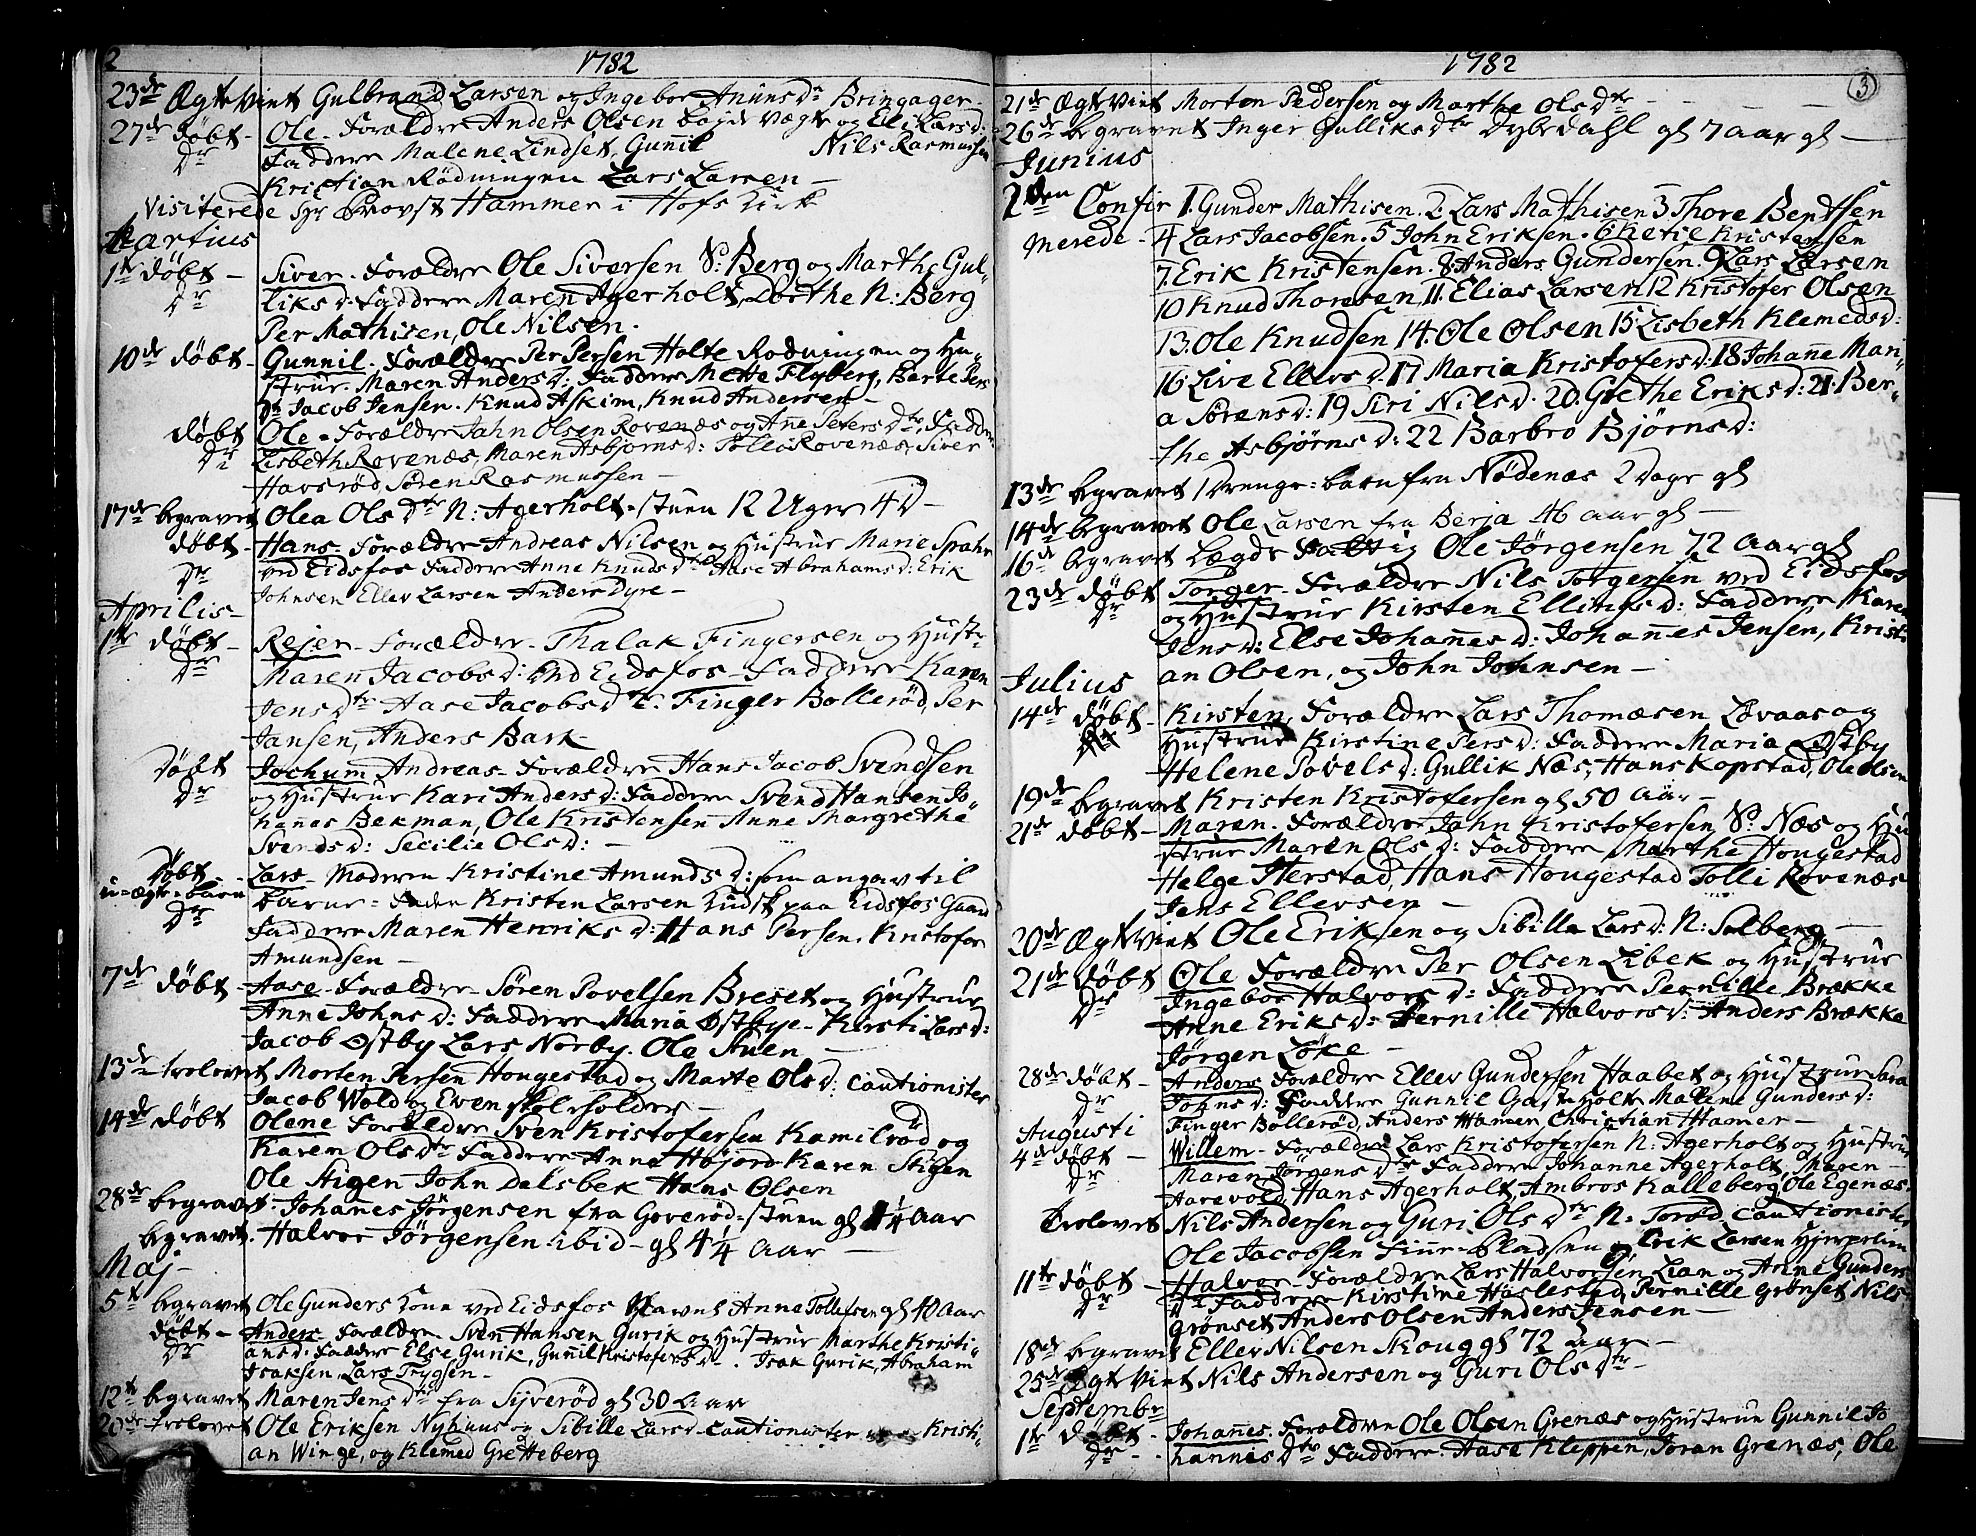 2
1782
23de Ægte Vint Gulbrand Larsen og Ingebor Anuns Dr Bringager
27de døbt Ole. Forældre Anders Olsen og Eli Larsd:
Dr Faddere Malene Lindset, Gunnil Nils Rasmussen
Kristian Rødningen Lars Larsen —
Visiterede Hr Provst Hammer i Hofs Kirk
Martius
1te døbt — Siver. Forældre Ole Siversen S: Berg og Marthe Gul-
Dr liks d: Faddere Maren Agerholt, Dorthe N: Berg
Per Mathisen, Ole Nilsen.
10de døbt Gunnil. Forældre Per Persen Holte Rødningen og Hu-
strur Maren Anders d: Faddere Mette Flyberg, Berte Pers
Dr Jacob Jensen. Knud Askim, Knud Andersen —
døbt Ole = Forældre Jahn Olsen Rovenæs og Anne Peters Dtr Faddere
Dr Lisbeth Rovenæs, Maren Asbjørnsd: Tolli Rovenæs, Siver
Havsrød Søren Rasmussen —
17de begravet Olea Ols Dtr N: Agerholt-stuen 12 Uger 4 D —
døbt Hans = Forældre Andreas Nilsen og Hustrur Marie Spahr
Dr ved Eidsfos Faddere Anne Knuds Dtr Aase Abrahams d: Erik
Johnsen Ellev Larsen Anders Dyre —
Aprilis —
1te døbt — Rejer — Forældre — Thalak Fingersen og Hustr-
Dr Maren Jacobs d: ved Eidsfos — Faddere Karen
Jens Dtr Aase Jacobs Dtr Finger Bollerød, Per
Jansen, Anders Bark
døbt Jochum Andreas = Forældre Hans Jacob Svendsen
Dr og Hustrur Kari Anders d: Faddere Svend Hansen Jo-
hannes Bekman, Ole Kristensen Anne Margrethe
Svends d: Secilie Ols d: —
døbt — Lars — Moderen Kristine Amunds d: som angav til
u-ægte-barn Barne = Fader Kristen Larsen Kudsk paa Eidsfos Gaard
Dr Faddere Maren Henriks d: Hans Persen. Kristofer
Amundsen —
7de døbt Aase — Forældre Søren Povelsen Breset og Hustrur
Anne Johns d: Faddere Maria Østbye — Kirsti Lars d:
Jacob Østby Lars Norby. Ole Stuen —
13de trolovet Morten Persen Hougestad og Marte Ols d: Cautionister
Jacob Wold og Even Skoleholder —
14de døbt Olene Forældre Sven Kristofersen Kamilrød og
Karen Ols Dtr Faddere Anne Højord Karen Stigen
Ole Stigen John Dalsbek Hans Olsen
28de begravet. Johannes Jørgensen fra Goverød-stuen gl 1¼ Aar
begravet. Halvor Jørgensen ibid — gl 4¼ Aar —
Maj —
5te begravet Ole Gunders Kone ved Eidsfos Navnl Anne Tollefsen gl 40 Aar
døbt — Anders Forældre Sven Hansen Gurik og Hustrur Marthe Kristi-
Dr ans d: Faddere Else Gurik, Gunnil Kristofers Dr. Isak Gurik, Abraham
Isaksen, Lars Trygsen —
12te begravet Maren Jens Dtr fra Syverød gl 30 Aar
20de trolovet Ole Eriksen Nyhuus og Sibille Lars d: Cautionister Kristi-
an Winge, og Klemed Gretteberg
1782
3
21de Ægte Vint Morten Pedersen og Marthe Ols Dtr — — — —
26de begravet Inger Gulliks Dtr Dybedahl gl 7 aar gl —
Junius
2den Confir 1. Gunder Mathisen. 2 Lars Mathisen 3 Thore Bentsen
merede — 4 Lars Jacobsen. 5 John Eriksen. 6 Ketil Kristensen
7. Erik Kristensen. 8 Anders Gundersen. 9 Lars Larsen
10 Knud Thoresen 11. Elias Larsen 12 Kristofer Olsen
13. Ole Knudsen 14. Ole Olsen 15 Lisbeth Klemeds d:
16. Live Ellevs d. 17 Maria Kristofers d: 18 Johanne Mari-
a Sørens d: 19 Siri Nils d. 20. Grethe Eriks d: 21. Ber-
the Asbjørns d: 22 Barbro Bjørns d:
13de begravet 1 Drenge-barn fra Nødenæs 2 Dage gl
14de begravet Ole Larsen fra Berja 46 aar gl —
16de begravet Lægds Fattig Ole Jørgensen 72 Aar gl
23de døbt Torger — Forældre Nils Torgersen ved Eidsfos
Dr og Hustrur Kirsten Ellings d: Faddere Karen
Jens d: Else Johannes d: Johannes Jensen, Krist-
an Olsen, og John Johnsen —
Julius
14de døbt — Kirsten, Forældre Lars Thomæsen Løvaas og
Dr Hustrur Kirstine Pers d: Faddere Maria Østby
Helene Povels d: Gullik Næs, Hans Kopstad, Ole Olsen
19de begravet Kristen Kristofersen gl 50 Aar —
21de døbt — Maren. Forældre Jahn Kristofersen S: Næs og Hu-
strur Maren Ols d: Faddere Marthe Hougestad
Helge Herstad, Hans Hougestad Tolli Rovenæs
Jens Ellevsen —
20de Ægte Vint Ole Eriksen og Sibilla Lars d: N: Solberg —
21de døbt Ole Forældre Per Olsen Libek og Hustrur
Dr Ingebor Halvors d: Faddere Pernille Brække
Anne Eriks d: Pernille Halvors d: Anders Brække
Jørgen Løke —
28de døbt — Anders Forældre Ellev Gundersen Haabet og Hustrur Sara
Dr Johns d: Faddere Gunnil Gasteholt Malene Gunders d:
Finger Bollerød, Anders Hamer, Christian Hamer —
Augusti
4de døbt — Willem — Forældre Lars Kristofersen N: Agerholt og Hustrur
Dr Maren Jørgens Dtr Faddere Johanne Agerholt, Maren —
Aarevold, Hans Agerholt, Ambros Kalleberg, Ole Egenæs
Trolovet Nils Andersen og Guri Ols Dtr N: Torød Cautionister
Ole Jacobsen Finne-Pladsen og Erik Larsen
11te døbt — Halvor — Forældre Lars Halvorsen Lian og Anne Gunders
Dr Faddere Kirstine Haslestad, Pernille Grønset Nils
Grønset Anders Olsen Anders Jensen —
18de begravet Ellev Nilsen Skoug gl 72 Aar —
25de Ægte Vint Nils Andersen og Guri Ols Dtr —
Septembr
1te døbt — Johannes. Forældre Ole Olsen Grenæs og Hustrun Gunnil Jo
Dr — hannis Dtr Faddere Aase Kleppen, Joran Grenæs, Ole